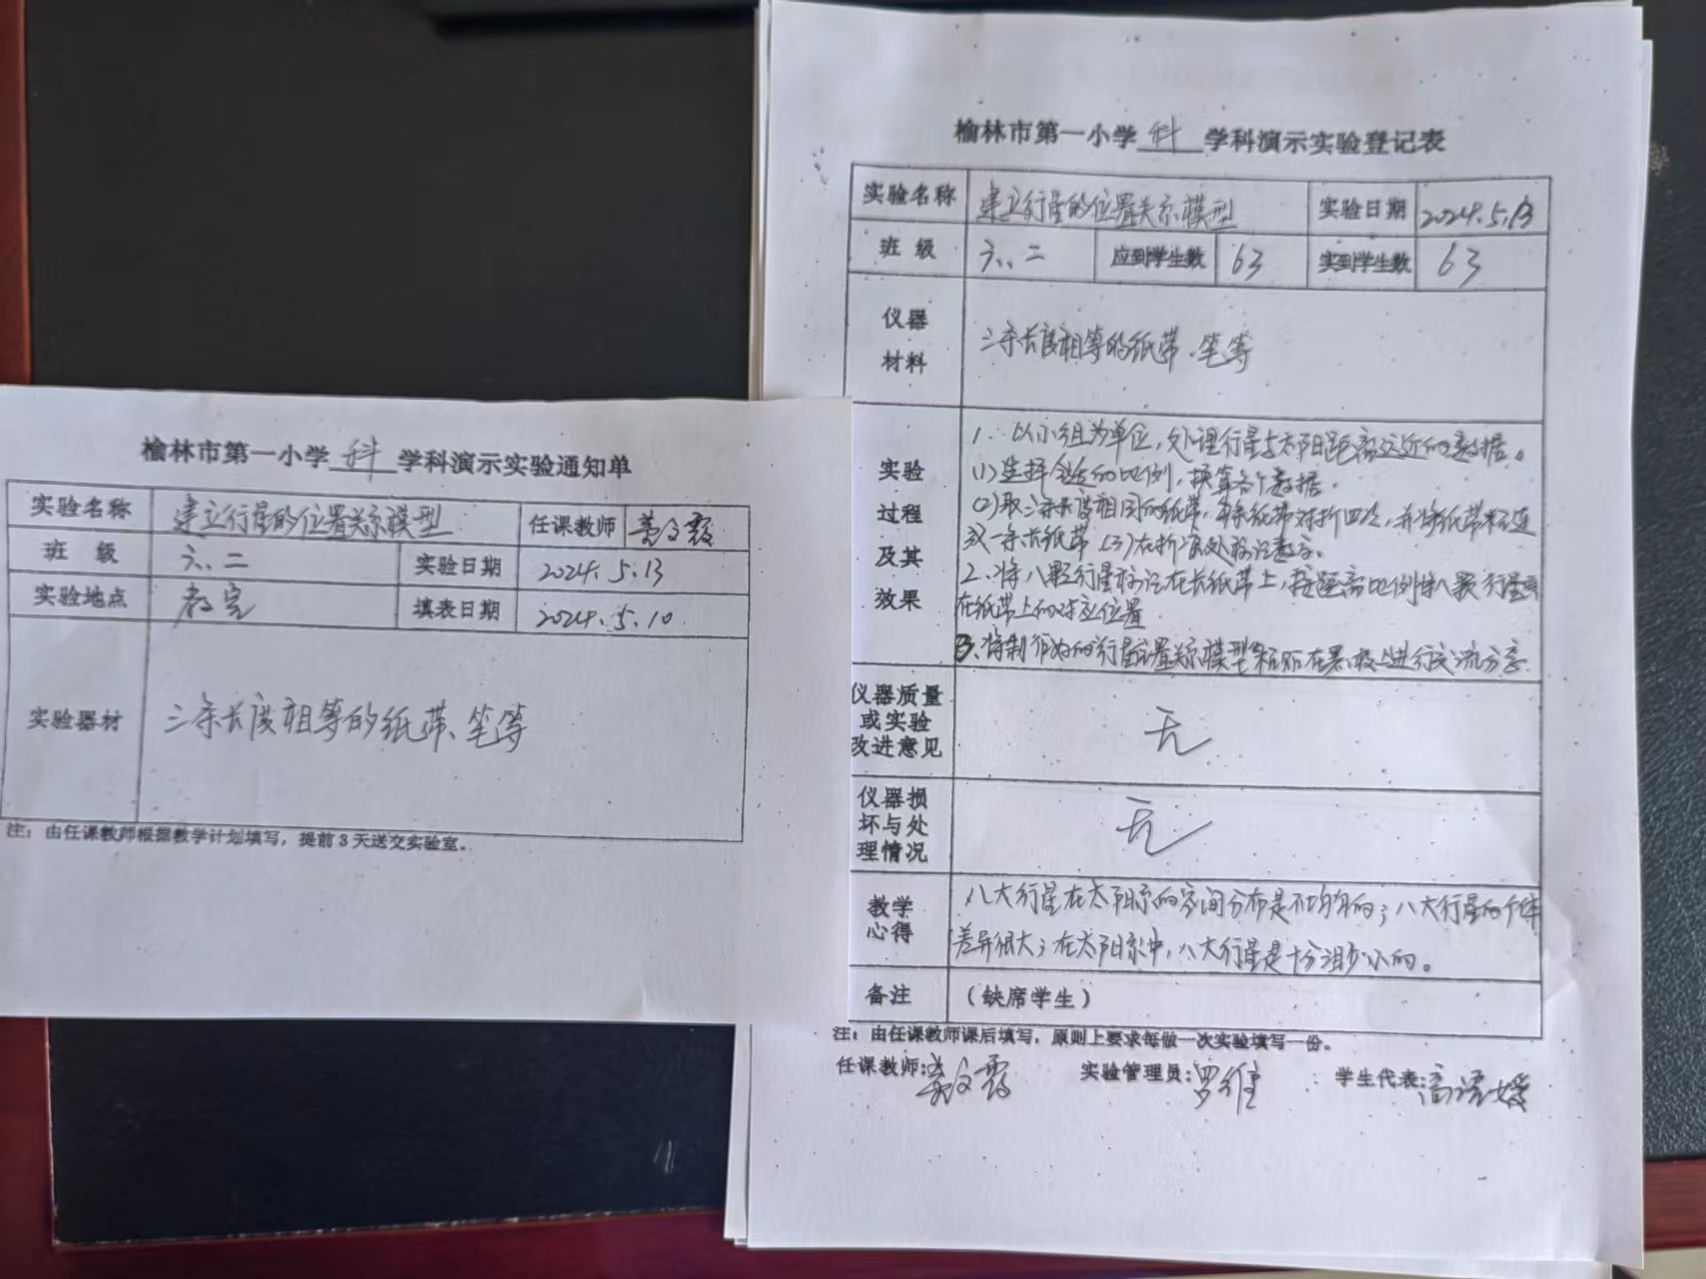 榆林市第一小学 科 学科演示实验通知单
实验名称 建立行星的位置关系模型 任课教师
班 级 六、二 实验日期 2024.5.13
实验地点 教室 填表日期 2024.5.10.
实验器材 三条长度相等的纸带、笔等
注：由任课教师根据教学计划填写，提前3天送交实验室。
榆林市第一小学 科 学科演示实验登记表
实验名称 建立行星的位置关系模型 实验日期 2024.5.13
班 级 六、二 应到学生数 63 实到学生数 63
仪器
材料
三条长度相等的纸带、笔等
实验
过程
及其
效果
1、以小组为单位，处理行星与太阳距离远近的数据。
(1)选择合适的比例，换算各个数据。
(2)取三条长度相同的纸带，每条纸带对折四次，并将纸带粘连
成一条长纸带 (3)在折痕处标记数字。
2、将八颗行星标记在长纸带上，按距离比例将八颗行星
在纸带上的对应位置
3、将制作好的行星位置关系模型粘贴在黑板上进行交流分享.
仪器质量
或实验
改进意见
无
仪器损
坏与处
理情况
无
教学
心得
八大行星在太阳系的空间分布是不均匀的；八大行星的个体
差异很大；在太阳系中，八大行星是十分渺小的。
备注 （缺席学生）
注：由任课教师课后填写，原则上要求每做一次实验填写一份。
任课教师: 实验管理员:罗维 学生代表:高